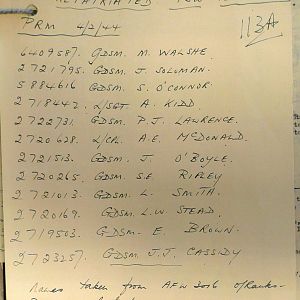 REPATRIATED POW
113A
PRM 4/2/44
6409587. GDSM. M. WALSHE.
2721795. GDSM. J. SOLOMAN.
5884616 GDSM. S. O'CONNOR.
2718442. L/SGT. A. KIDD.
2722731. GDSM. P.J. LAURENCE.
2720628. L/CPL. A.E. McDONALD.
2721513. GDSM. J. O'BOYLE.
2720265. GDSM. S.E. RIPLEY
2721013. GDSM. L. SMITH.
2720169. GDSM. L.W. STEAD.
2719503. GDSM. E. BROWN.
2723257. GDSM. J.J. CASSIDY
Names taken from AFW 2016 of Ranks